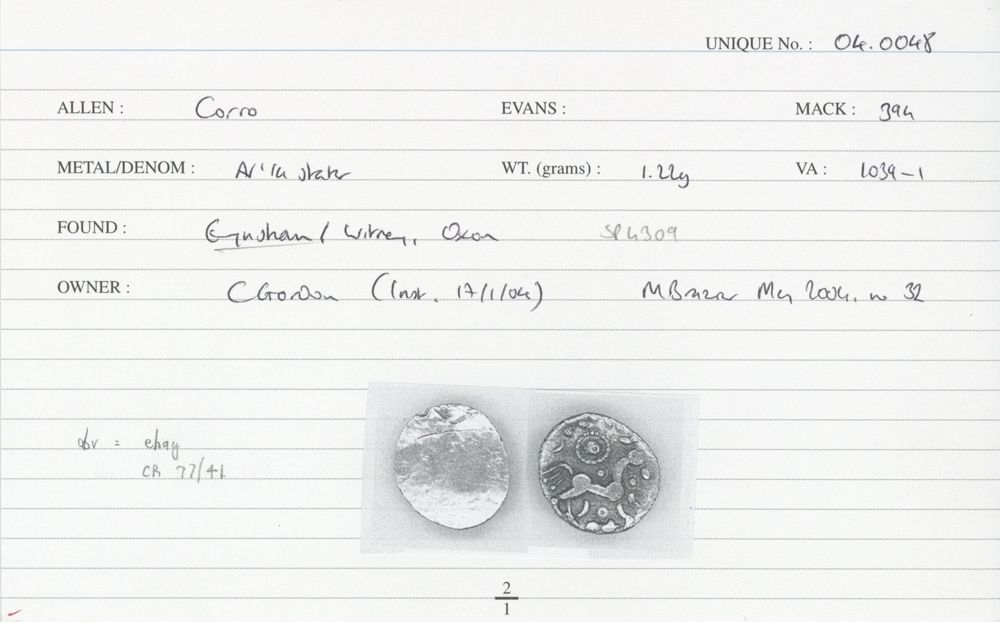 UNIQUE No. : 04.0048
ALLEN : Corio EVANS : MACK : 394
METAL/DENOM : AV 1/4 stater WT. (grams) : 1.22g VA : 1039-1
FOUND : Eynsham / Witney, Oxon SP4309
OWNER : C Gordon (Inst. 17/1/04) May 2004, no 32
obv = ebay
CR 77/41
2
1